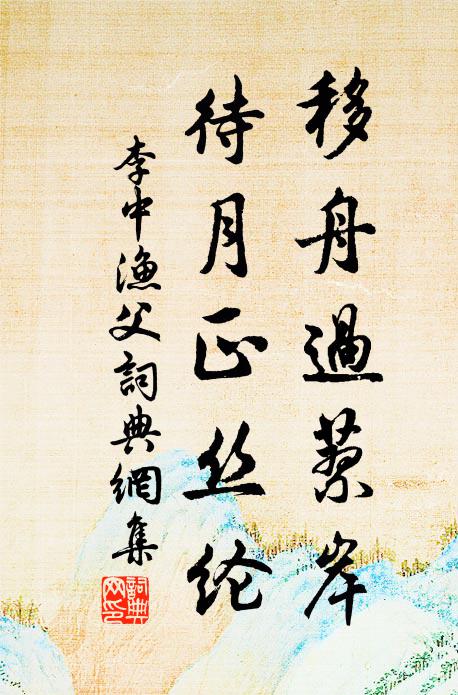 移舟過蓼岸
待月正丝纶
李中渔父詞典網集
詞典网印